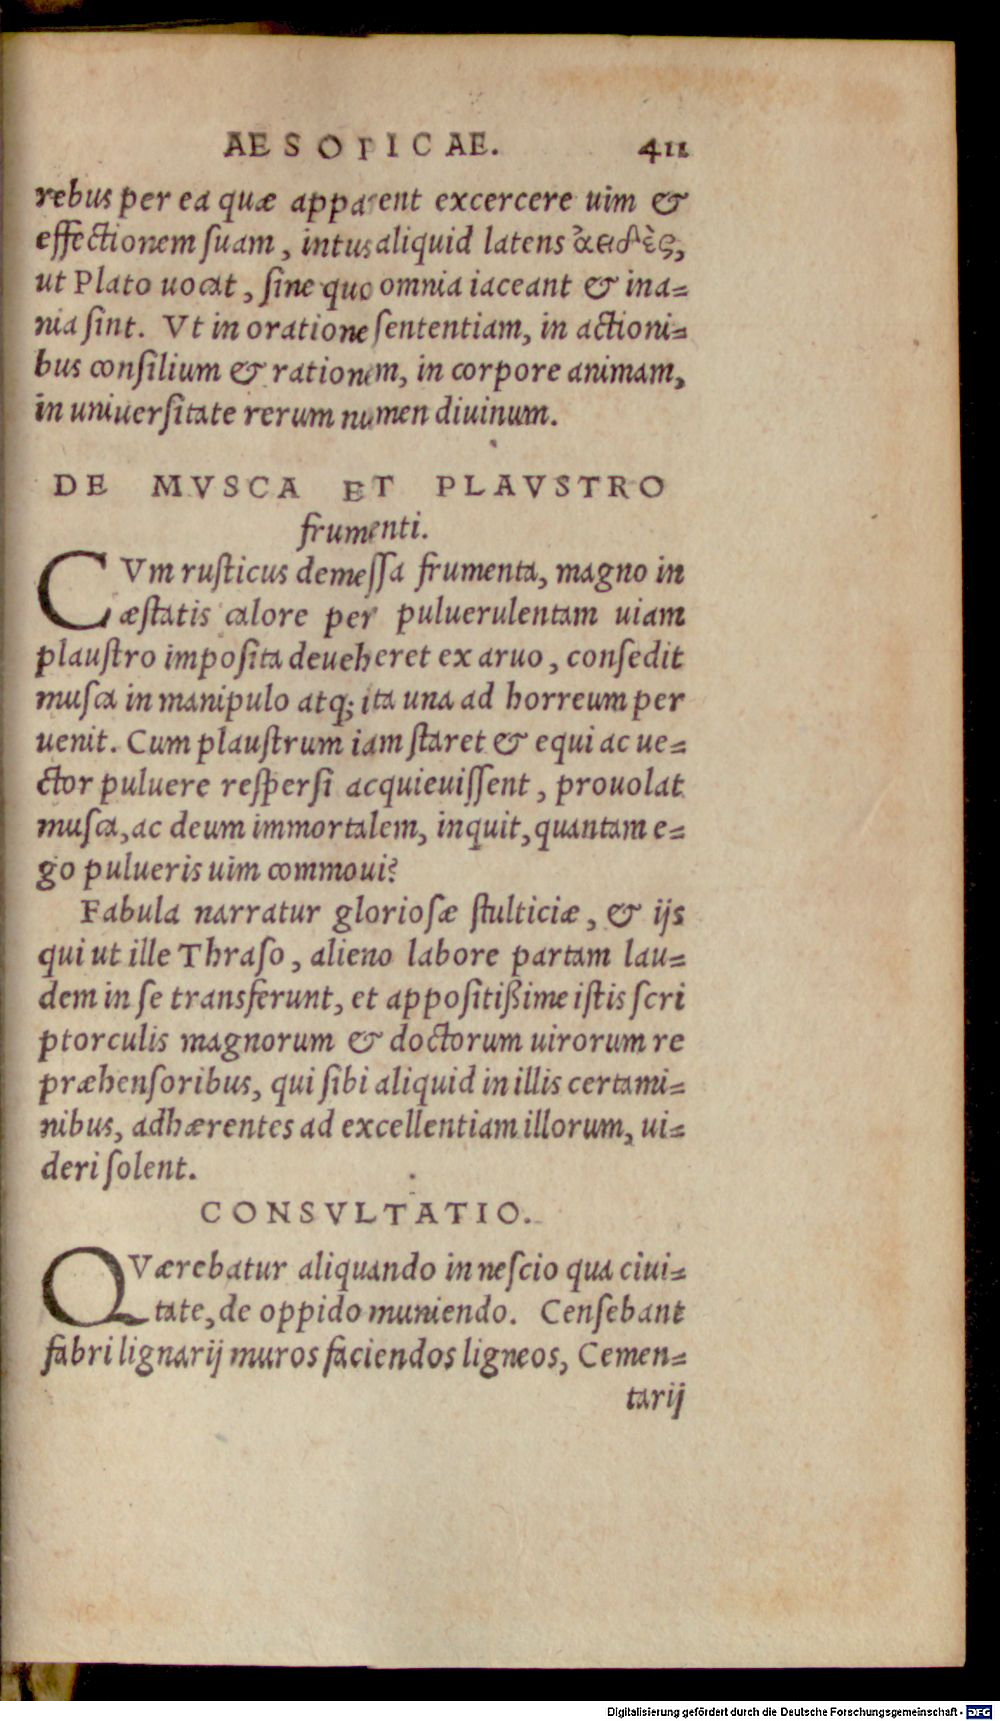 AESOPICAE. 411
rebus per ea quæ apparent excercere uim &
effectionem ſuam, intus aliquid latens ἀειδὲς,
ut Plato uocat, ſine quo omnia iaceant & ina=
nia ſint. Vt in oratione ſententiam, in actioni=
bus conſilium & rationem, in corpore animam,
in uniuerſitate rerum numen diuinum.
DE MVSCA ET PLAVSTRO
frumenti.
CVm ruſticus demeſſa frumenta, magno in
æſtatis calore per puluerulentam uiam
plauſtro impoſita deueheret ex aruo, conſedit
muſca in manipulo atq; ita una ad horreum per
uenit. Cum plauſtrum iam ſtaret & equi ac ue=
ctor puluere reſperſi acquieuiſſent, prouolat
muſca, ac deum immortalem, inquit, quantam e=
go pulueris uim commoui?
Fabula narratur glorioſæ ſtulticiæ, & ijs
qui ut ille Thraſo, alieno labore partam lau=
dem in ſe transferunt, et appoſitißime iſtis ſcri
ptorculis magnorum & doctorum uirorum re
præhenſoribus, qui ſibi aliquid in illis certami=
nibus, adhærentes ad excellentiam illorum, ui=
deri ſolent.
CONSVLTATIO.
QVærebatur aliquando in neſcio qua ciui=
tate, de oppido muniendo. Cenſebant
fabri lignarij muros faciendos ligneos, Cemen=
tarij
Digitalisierung gefördert durch die Deutsche Forschungsgemeinschaft - DFG